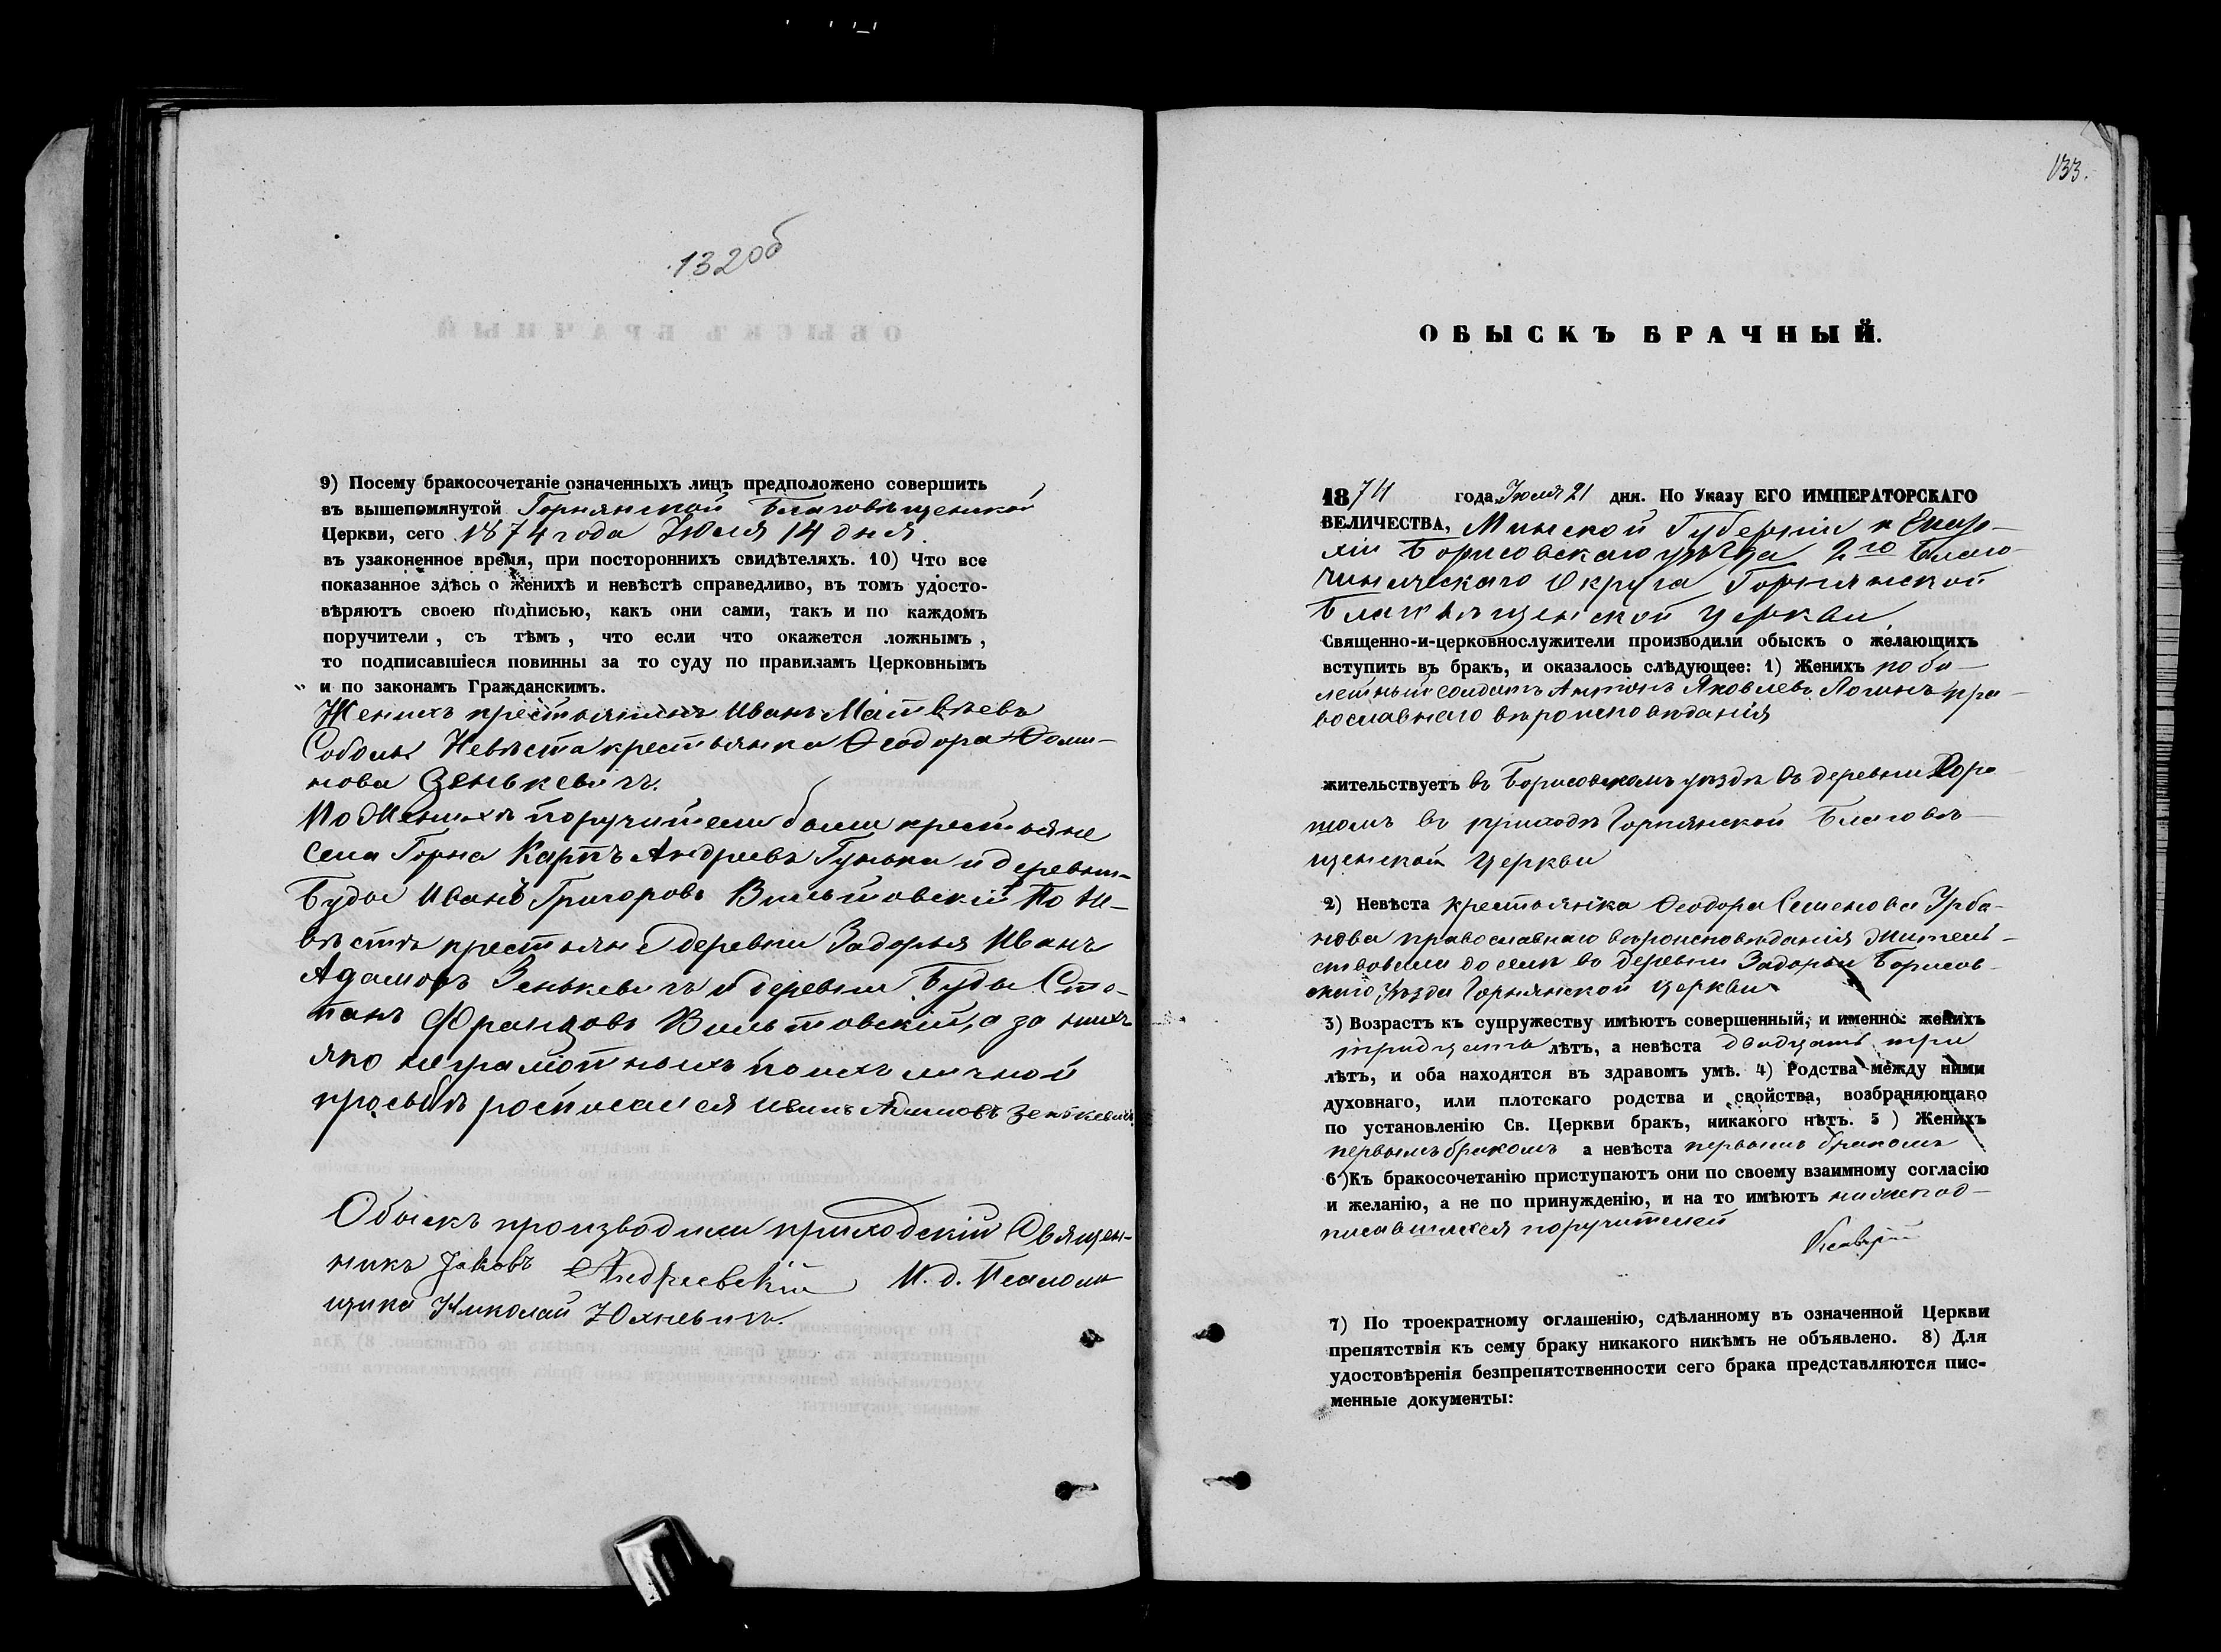 132 об
9) Посему бракосочетаніе означенныхъ лицъ предположено совершить
въ вышепомянутой Горнянской Благовѣщенской
Церкви, сего 1874 года Июля 14 дня
въ узаконенное время, при постороннихъ свидѣтеляхъ. 10) Что все
показанное здѣсь о женихѣ и невѣстѣ справедливо, въ томъ удосто-
вѣряютъ своею подписью, какъ они сами, такъ и по каждомъ
поручители, съ тѣмъ, что если что окажется ложнымъ,
то подписавшіеся повинны за то суду по правиламъ Церковнымъ
и по законамъ Гражданскимъ.
Женихъ крестьянинъ Иванъ Матвѣевъ
Соболь Невѣста крестьянка Ѳеодора Ѳоми-
нова Зенькевичъ.
По Женихѣ поручители были крестьяне
села Горна Карпъ Андреевъ Гунька и деревни
Буды Иванъ Григоровъ Вильтовскій По Не-
вѣстѣ крестьяне деревни Задорья Иванъ
Адамовъ Зенькевичъ и деревни Буды Сте-
панъ Францовъ Вильтовскій, а за нихъ
яко неграмотныхъ по ихъ личной
просьбѣ росписался Иванъ Адамовъ Зенькевичъ
Обыскъ производили приходскій Священ-
никъ Іаковъ Андреевскій И. д. Псаломъ
щика Николай Юхневичъ.
133.
ОБЫСКЪ БРАЧНЫЙ.
1874 года Июля 21 дня. По Указу ЕГО ИМПЕРАТОРСКАГО
ВЕЛИЧЕСТВА, Минской Губерніи и Епар-
хіи Борисовскаго уѣзда 2го Благо-
чинническаго Округа Горнянской
Благовѣщенской Церкви
Священно-и-церковнослужители производили обыскъ о желающихъ
вступить въ бракъ, и оказалось слѣдующее: 1) Женихъ
солдатъ Антонъ Яковлевъ пра-
вославнаго вѣроисповѣданія
жительствуетъ въ Борисовскомъ уѣздѣ въ деревни
въ приходѣ Горнянской Благовѣ-
щенской Церкви
2) Невѣста крестьянка Ѳеодора Семенова Урба-
нова православнаго вѣроисповѣданія Жител-
ствовала до селѣ въ деревни Задорьи Борисов-
скаго Уѣзда Горнянской Церкви
3) Возрастъ къ супружеству имѣютъ совершенный, и именно: женихъ
тридцать лѣтъ, а невѣста двадцать три
лѣтъ, и оба находятся въ здравомъ умѣ. 4) Родства между ними
духовнаго, или плотскаго родства и свойства, возбраняющаго
по установленію Св. Церкви бракъ, никакого нѣтъ. 5 ) Женихъ
первымъ бракомъ а невѣста первымъ бракомъ
6)Къ бракосочетанію приступаютъ они по своему взаимному согласію
и желанію, а не по принужденію, и на то имѣютъ нижепод-
писавшихся поручителей
7) По троекратному оглашенію, сдѣланному въ означенной Церкви
препятствія къ сему браку никакого никѣмъ не объявлено. 8) Для
удостовѣренія безпрепятственности сего брака представляются пис-
менные документы: